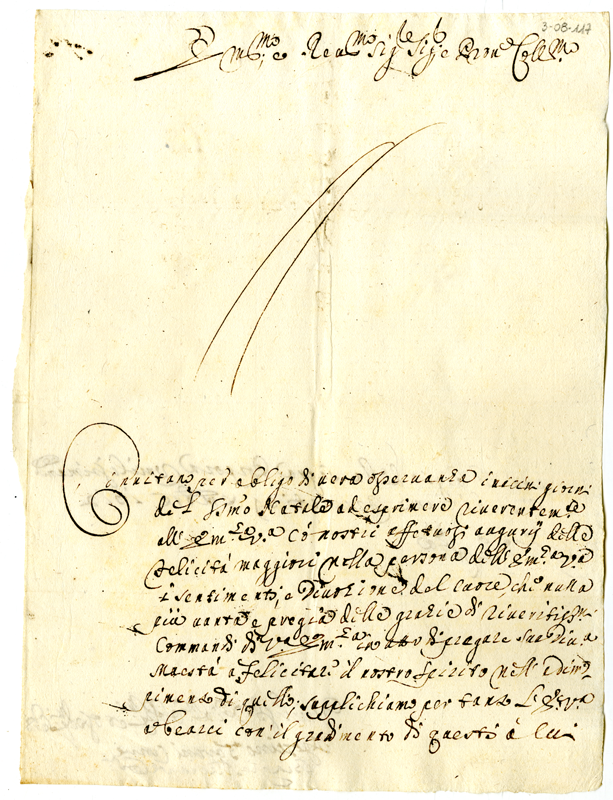 3-08-117
Em.mo e Reu.mo Sig.re Sig.re e Pron.e Coll.mo
C' inuitano per obligo di uera osseruanza i uicini giorni
del S.simo Natale ad esprimere riuerentem.te
all' Em.za V.a co' nostri affetuosi augurij delle
felicità maggiori nella persona dell' Em.za V.a
i sentimenti, e Diuozione del cuore, che nulla
più uanta e pregia delle grazie di riueritiss.mi
Commandi di V.a Em.za in atto di pregare Sua Diu.a
Maestà a felicitare il nostro spirito nell' adim-
pimento di quello; supplichiamo per tanto L' E. V.a
a bearci con il gradimento di questi à lui